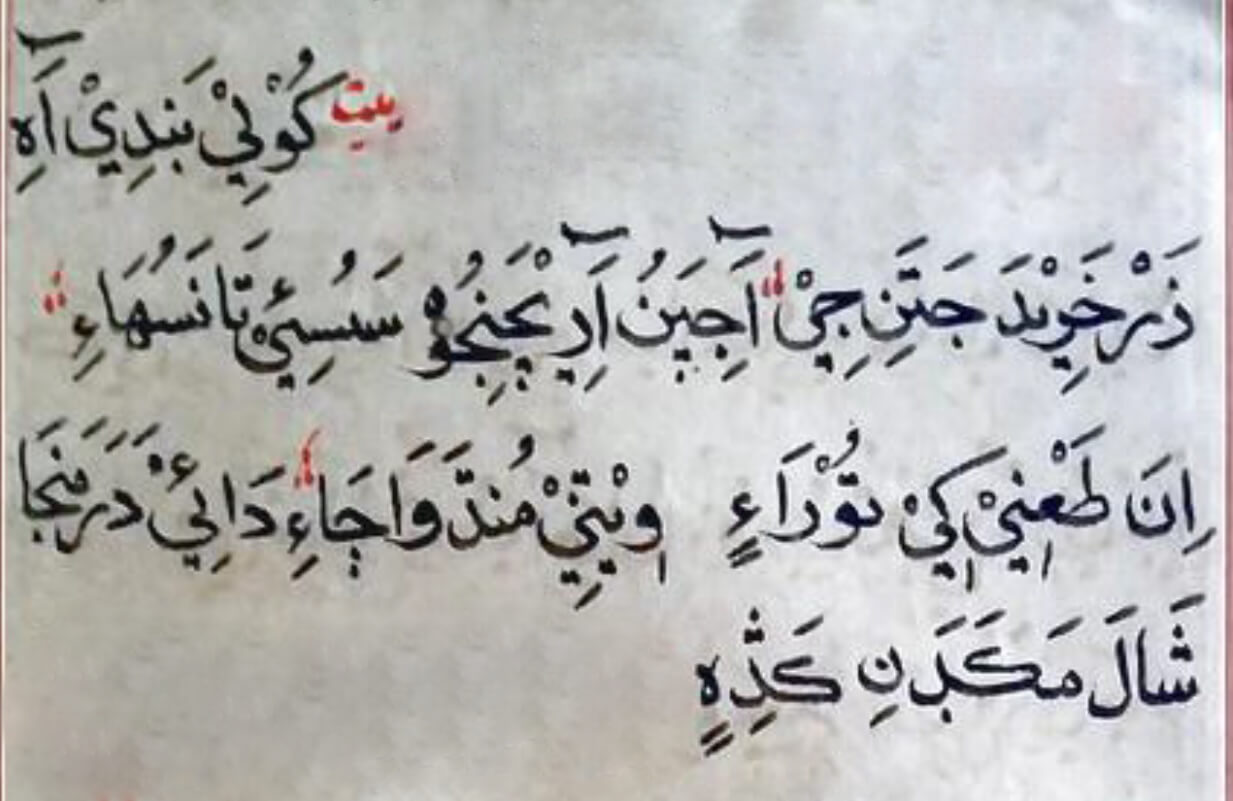 بيت كُوْلِيْ بَندِيْ آَهِ
ذَرْ خَرِيْدَ جَتَنِ جِيْ آَجِيَنُ آَرِيْچَنِجُوْ سَسُئِيْ تَا نَسُهَاءِ
اِنَ طَعْنِيْ كِيْ تُوْرَاءِ وِيْٺِيْ مُندَ وَاڄَاءِ دَائِيْ دَرَ مَنجَا
شَالَ مَ كَڍَنِ كَڎِهِ